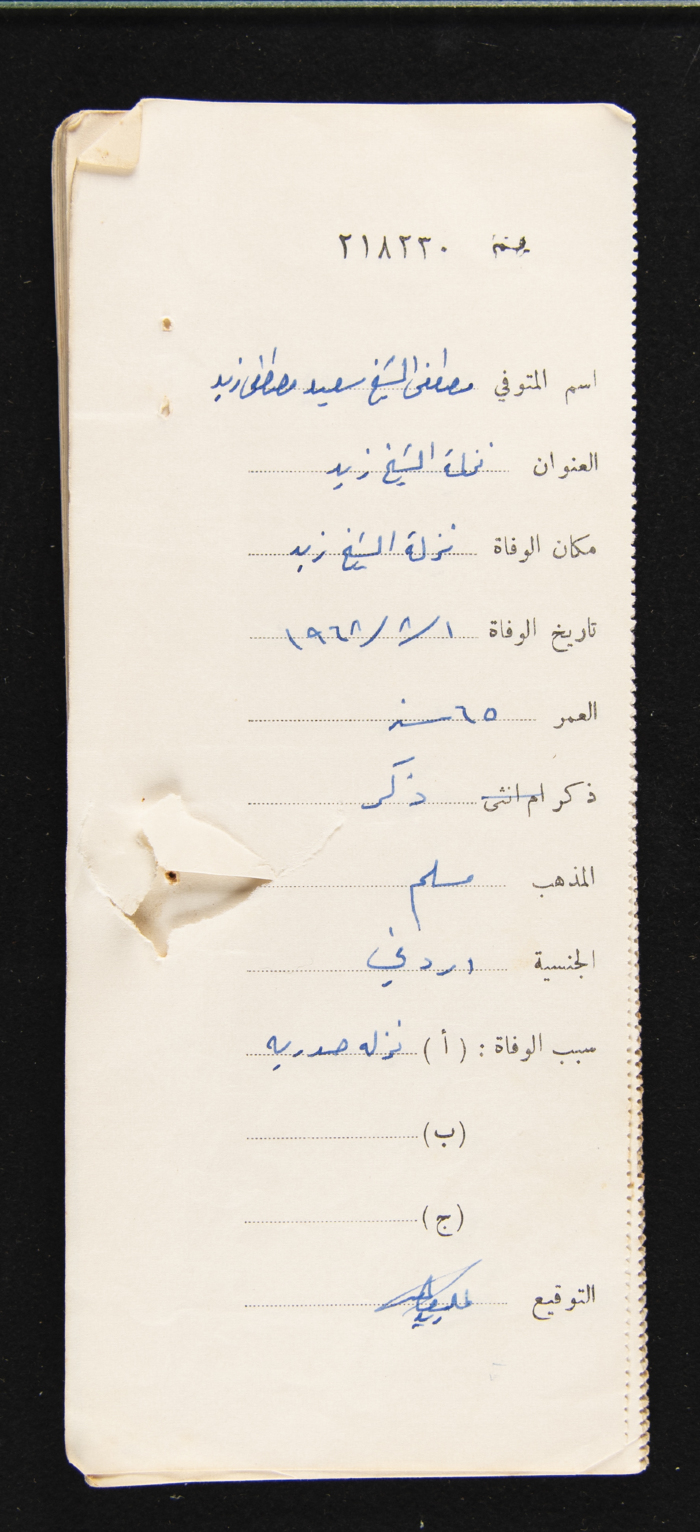 ٢١٨٢٣٠
اسم المتوفي مصطفى الشيخ سعيد مصطفى زيد
العنوان نزلة الشيخ زيد
مكان الوفاة نزلة الشيخ زيد
تاريخ الوفاة ١/٨/١٩٦٨
العمر ٦٥ سنه
ذكر ام انثى ذكر
المذهب مسلم
الجنسية اردني
سبب الوفاة : ( أ ) نزله صدريه
(ب)
(ج)
التوقيع